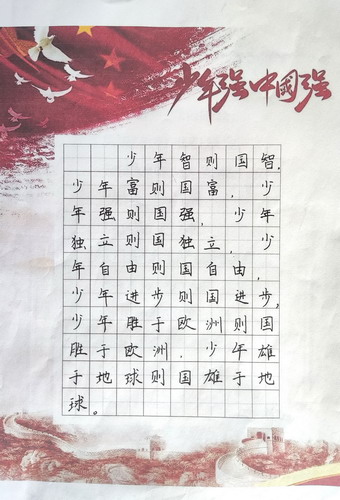 少年强中國强
少年智则国智,
少年富则国富,少
年强则国强,少年
独立则国独立,少
年自由则国自由,
少年进步则国进步,
少年胜于欧洲则国
胜于欧洲.少年雄
于地球则国雄于地
球。